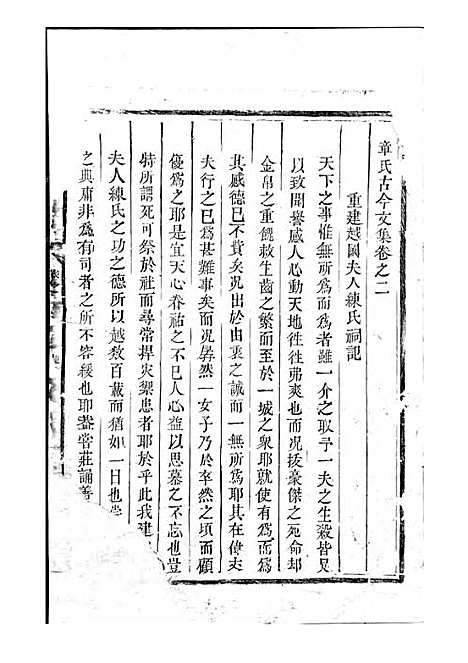 章氏古今文集卷之二
重建越國夫人練氏祠記
天下之事惟無所爲而爲者雖一介之取予一夫之生殺皆足
以致聞譽感人心動天地徃徃弗爽也而况拔豪傑之死命却
金帛之重餽救生齒之繁而至於一城之衆耶就使有爲而爲
其感德已不貲矣况出於由衷之誠而一無所爲耶其在偉丈
夫行之已爲甚難事矣而况孱然一女子乃於卒然之頃而顧
優爲之耶是宜天心眷祐之不已人心益以思慕之不忘也豈
特所謂死可祭於社而尋常捍灾禦患者耶於乎此我建
夫人練氏之功之德所以越数百載而猶如一日也
之典庸非爲有司者之所不容緩也耶蓋嘗莊誦